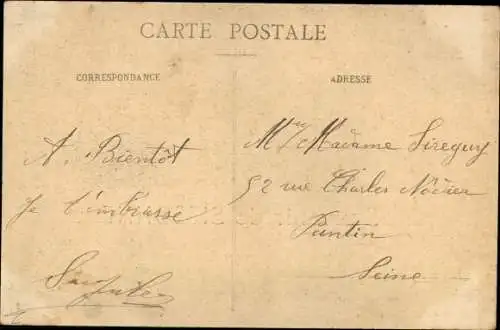 CARTE POSTALE
CORRESPONDANCE
ADRESSE
A. Bientôt
Je t'embrasse
Mme Madame Sireguy
52 rue Charles Nodier
Pantin
Seine